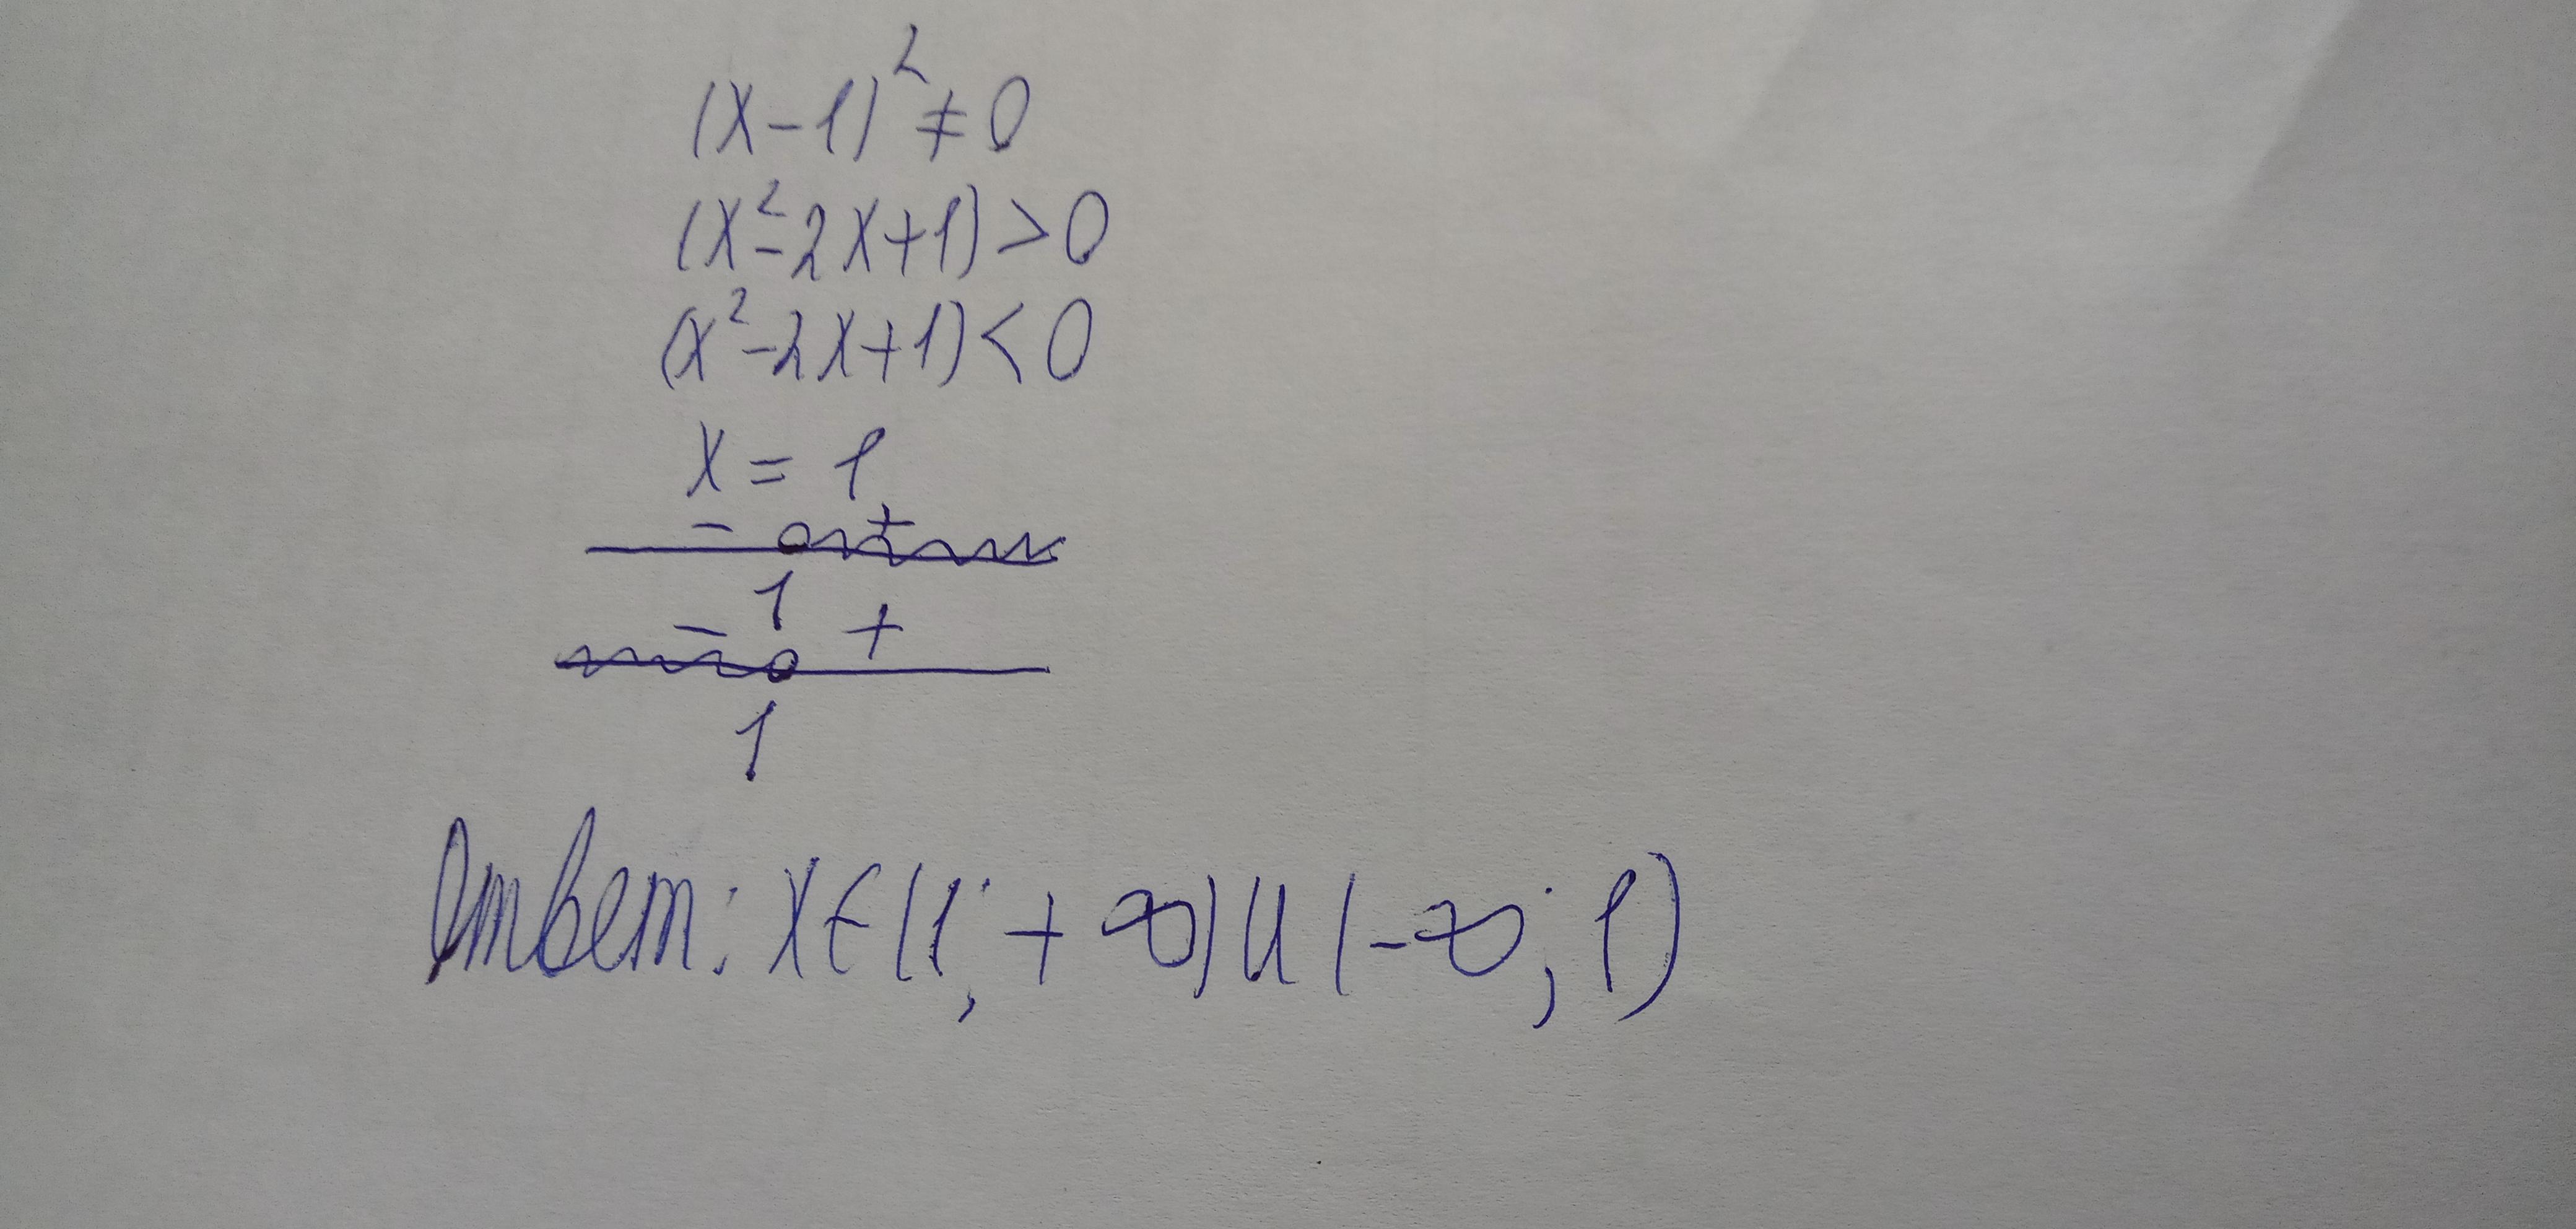 (x-1)² ≠ 0
(x²-2x+1) > 0
(x²-2x+1) < 0
x = 1
- +
1
- +
1
Ответ: x∈(1; +∞)U(-∞; 1)